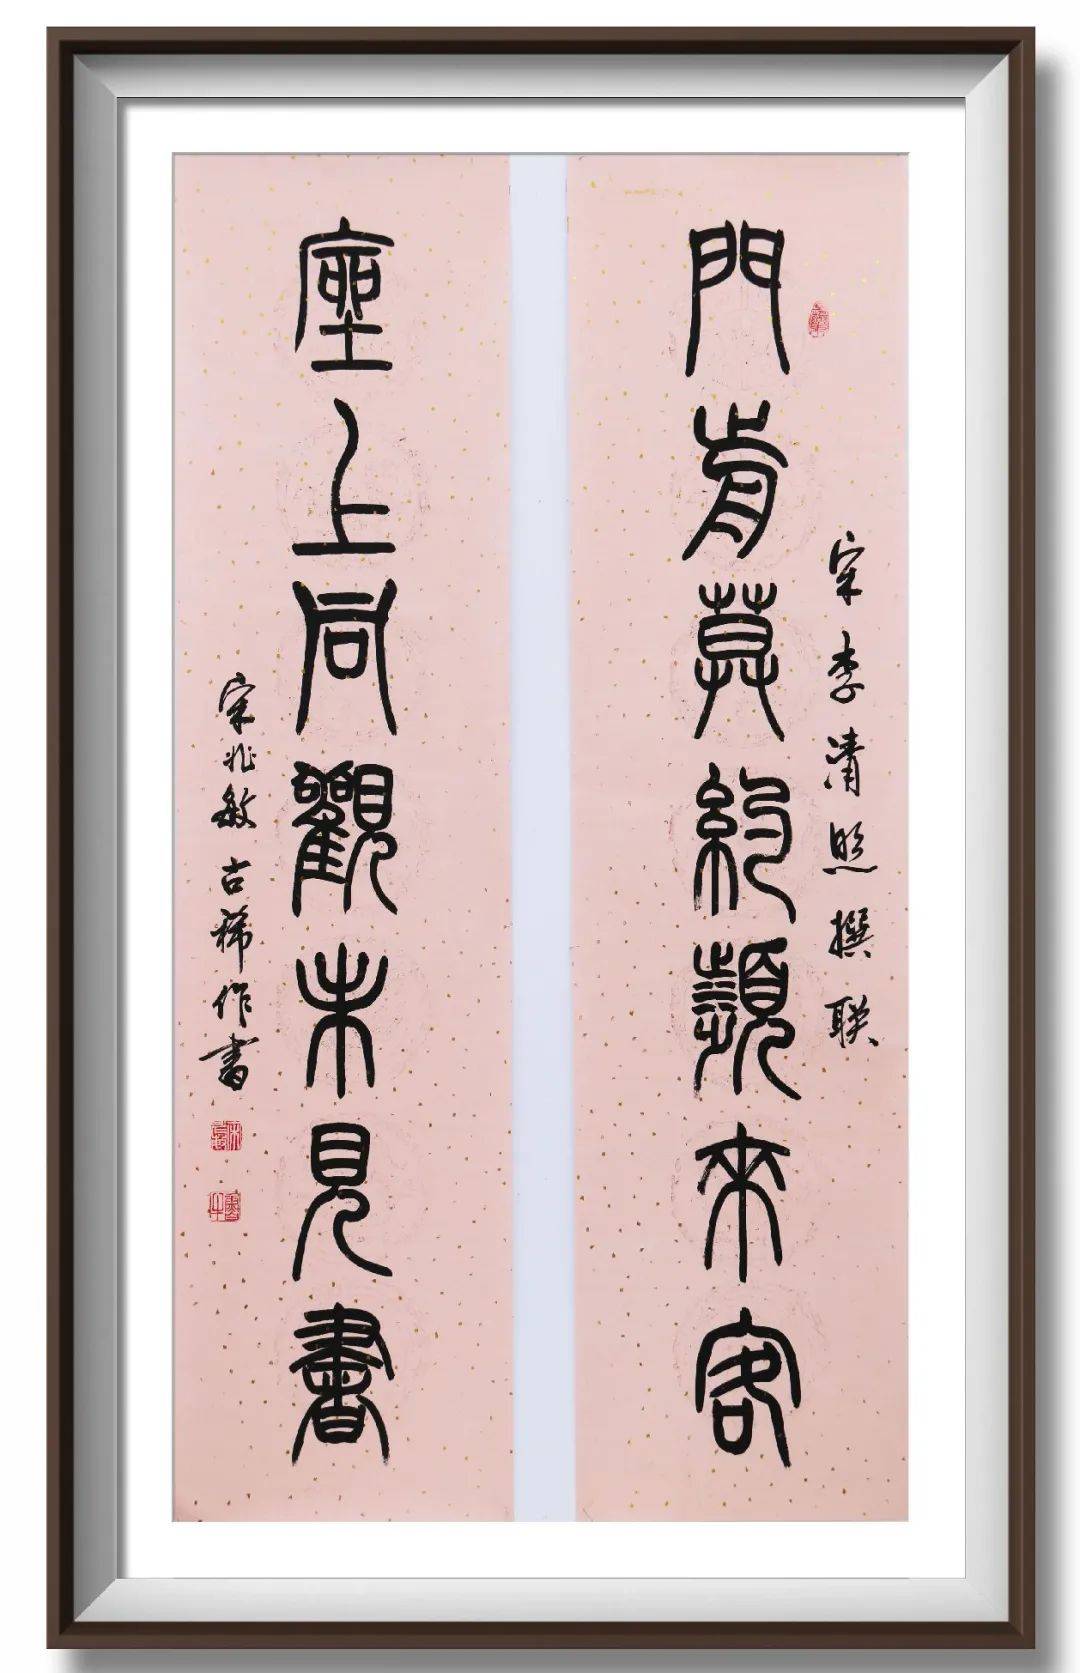 宋李清照撰联
門前莫約頻來客
座上同觀未見書
宋兆敏古稀作書